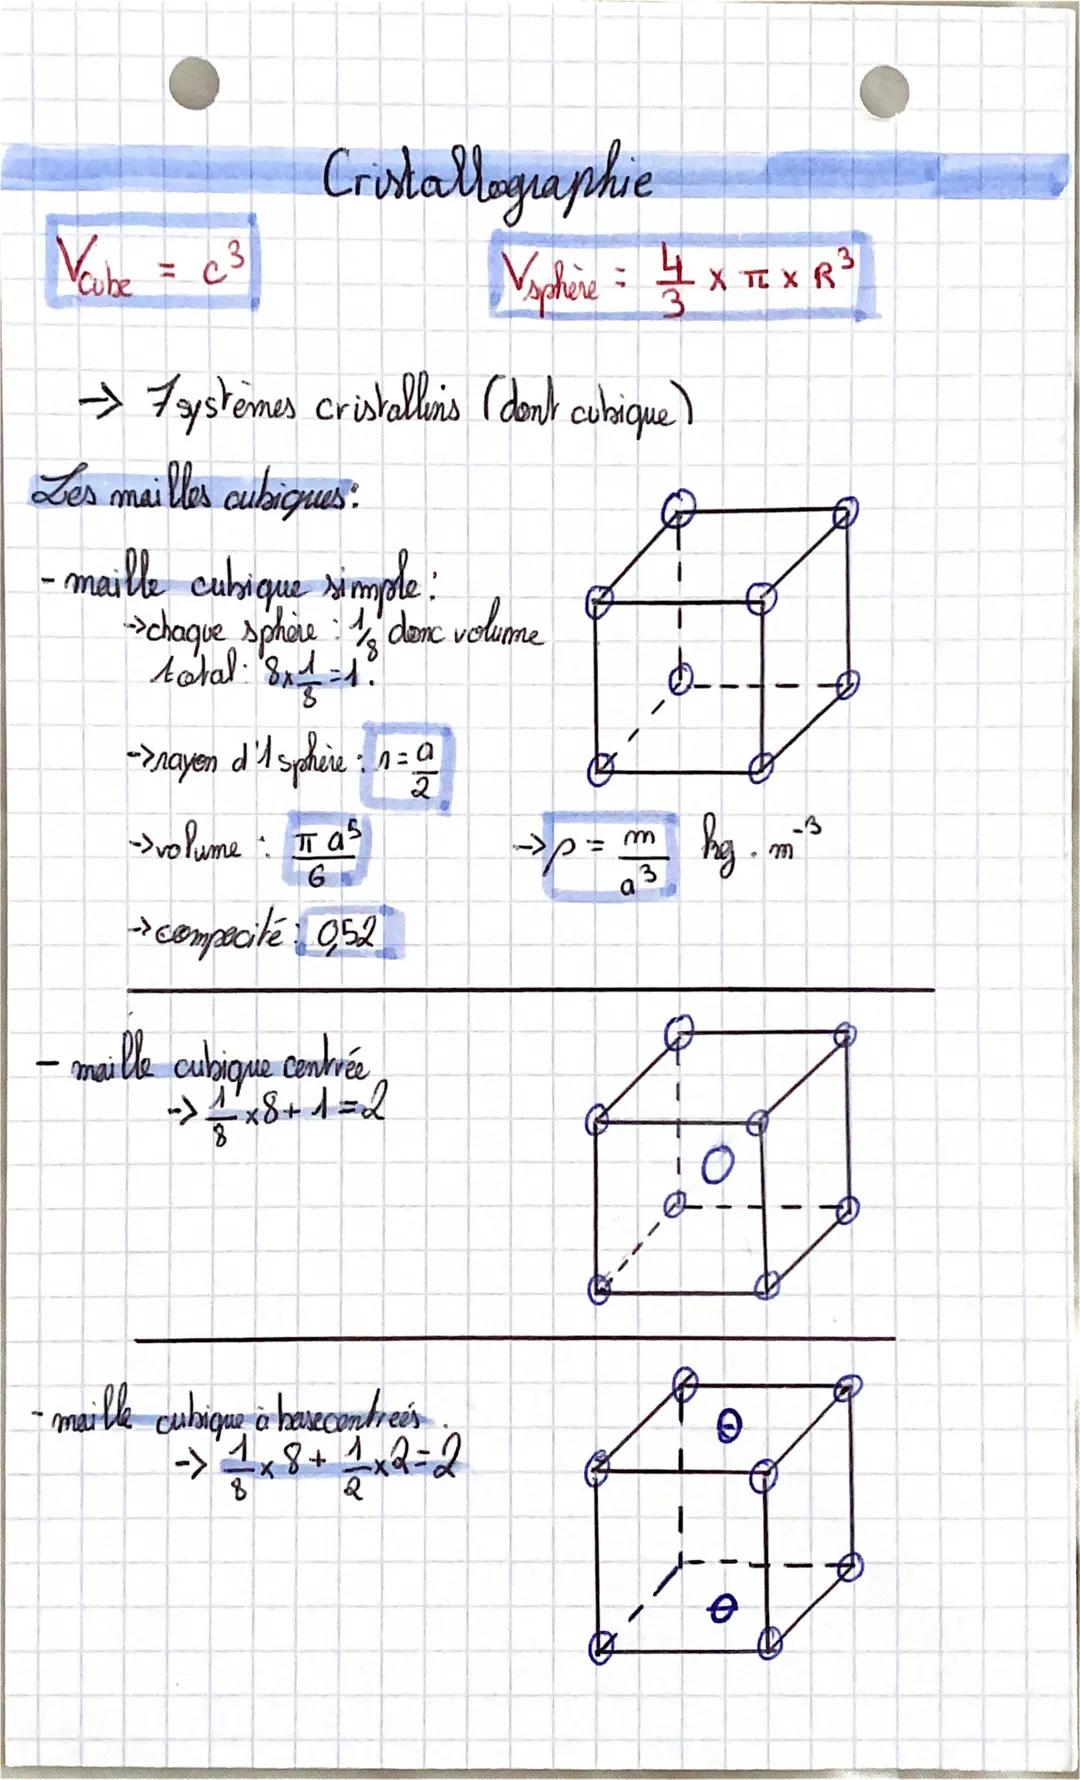 Cristallographie
Vcube = c³
Vsphère = 4/3 x π x R³
→ 7 systèmes cristallins (dont cubique)
Les mailles cubiques:
- maille cubique simple:
→ chaque sphère : 1/8 donc volume
total: 8x1/8=1.
→ rayon d'1 sphère : r = a/2
→ volume : π a⁵/6
→ ρ = m/a³ kg . m⁻³
→ compacité: 0,52
- maille cubique centrée
→ 1/8 x8+ 1 = 2
- maille cubique à base centreés.
→ 1/8 x 8 + 1/2 x 2 = 2